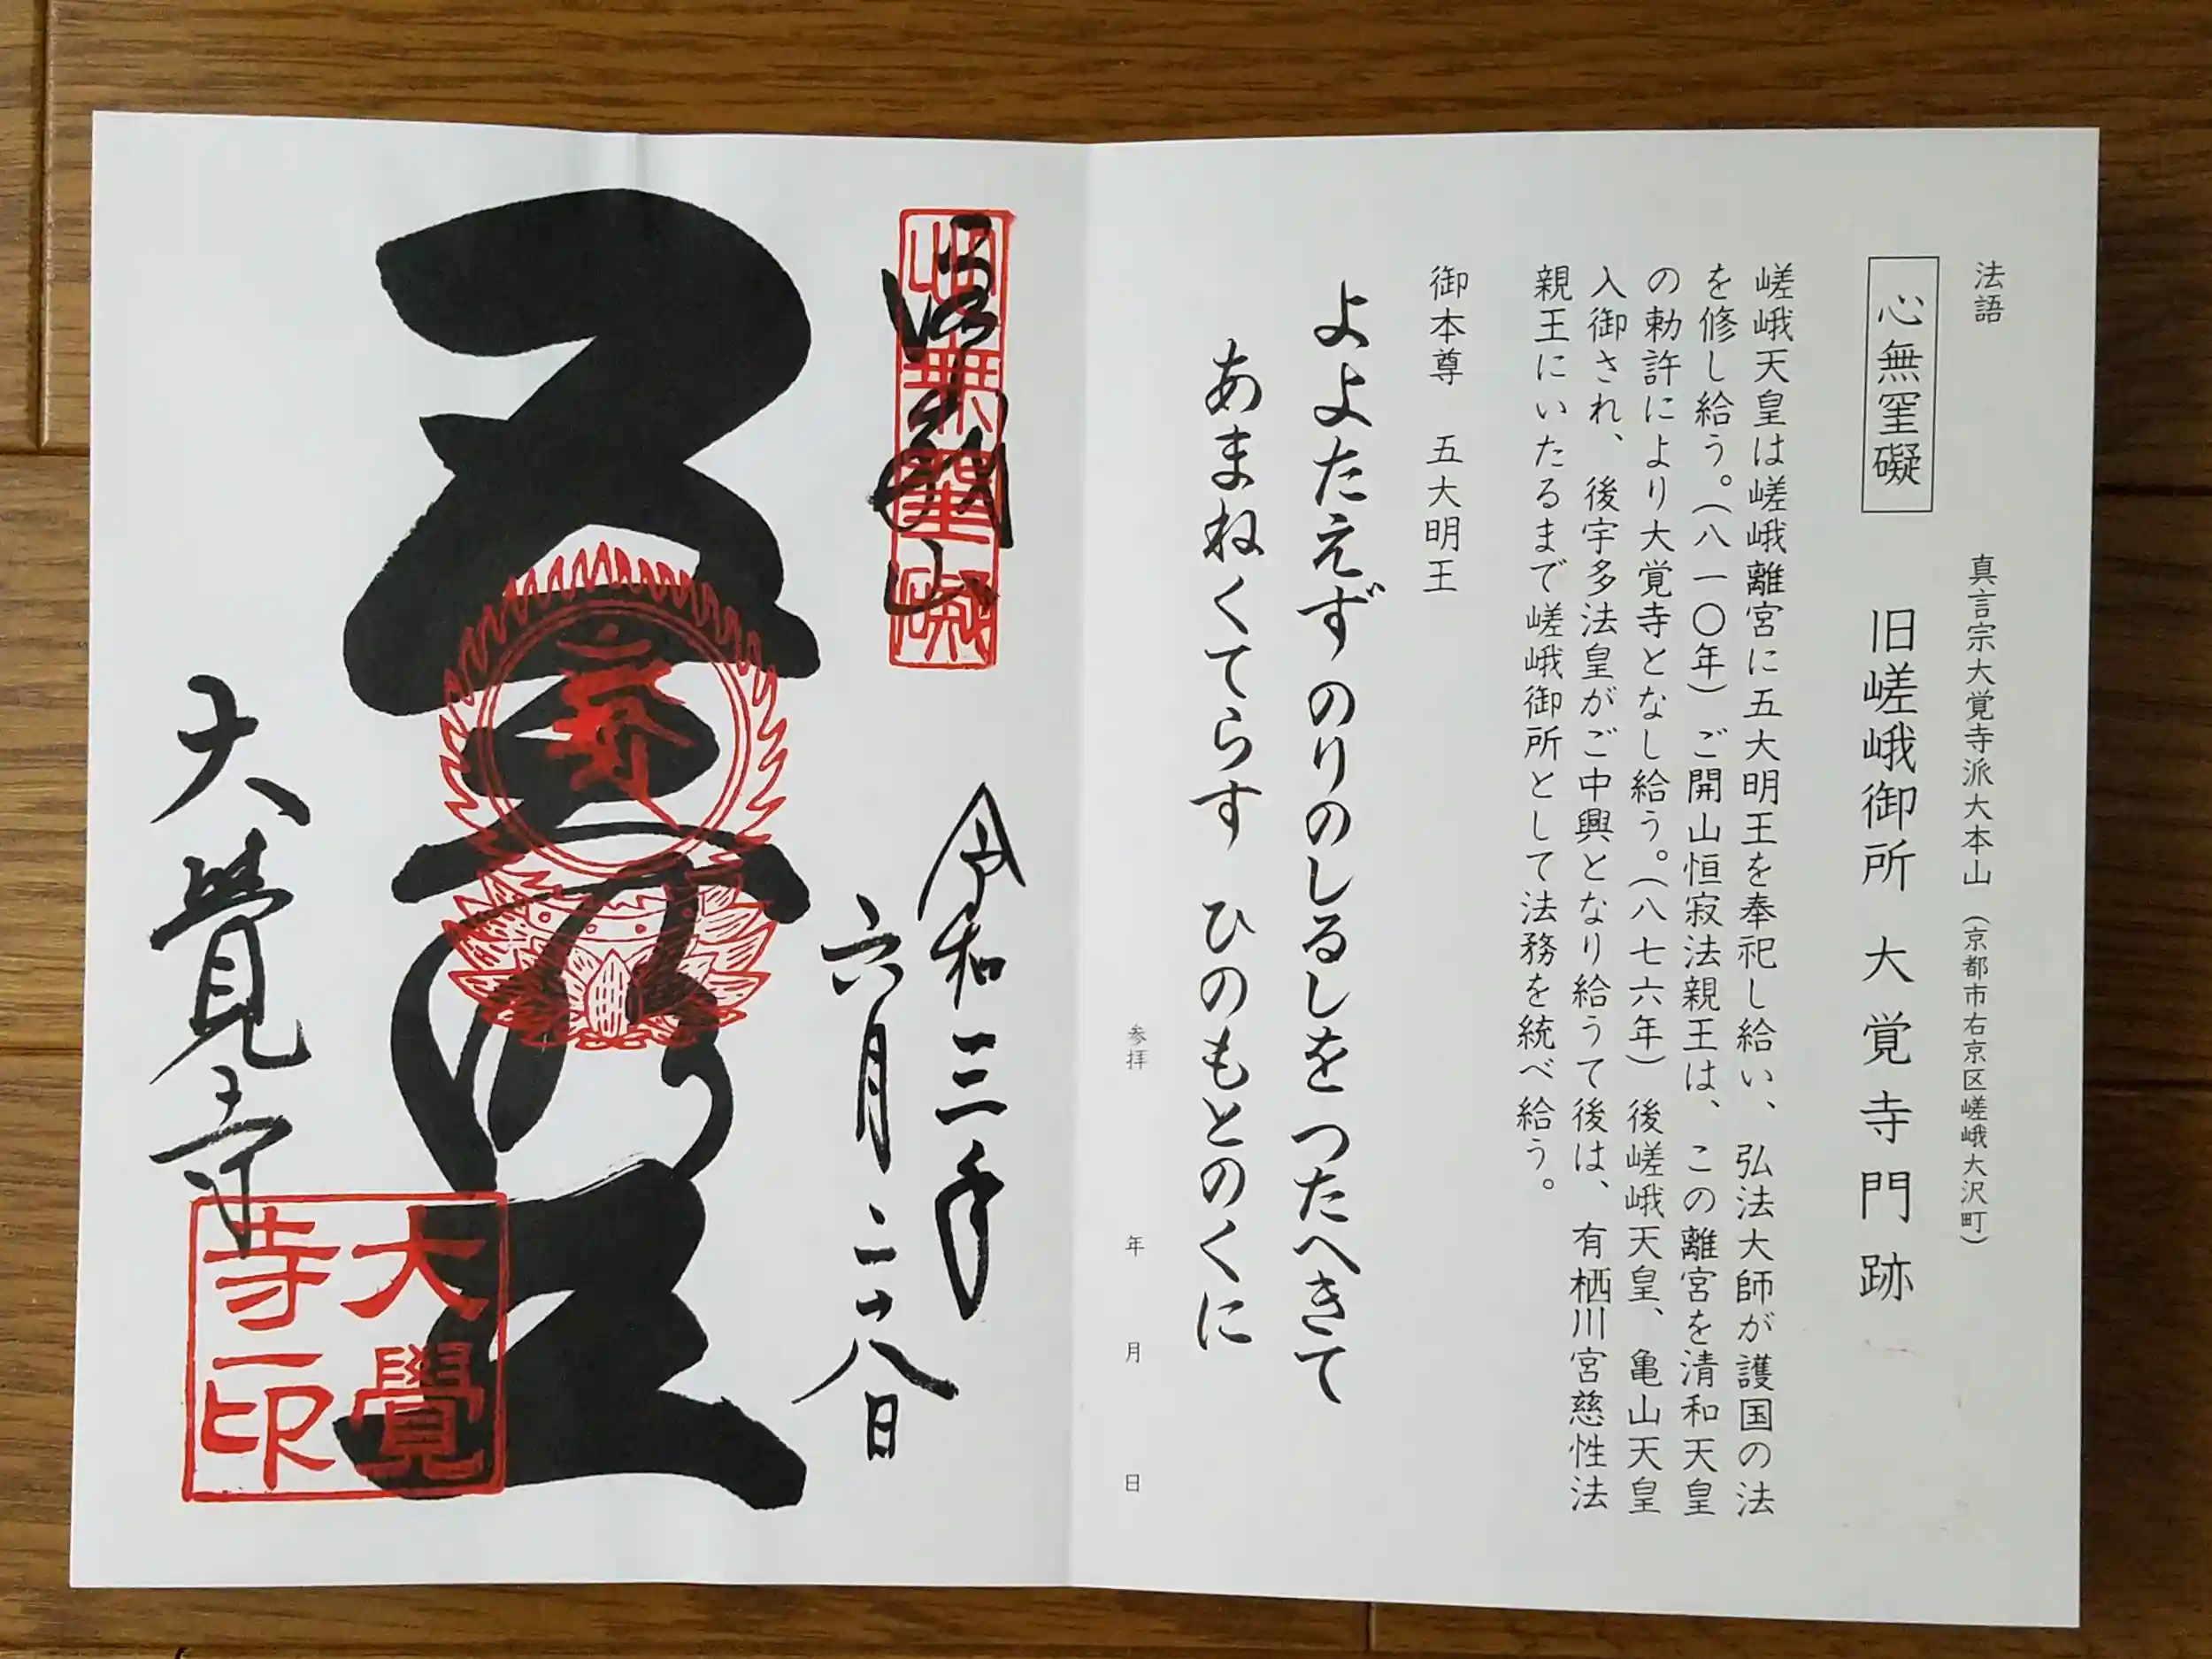 法語
真言宗大覚寺派大本山（京都市右京区嵯峨大沢町）
心無罣礙
旧嵯峨御所 大覚寺門跡
嵯峨天皇は嵯峨離宮に五大明王を奉祀し給い、弘法大師が護国の法
を修し給う。（八一〇年）ご開山恒寂法親王は、この離宮を清和天皇
の勅許により大覚寺となし給う。（八七六年）後嵯峨天皇、亀山天皇
入御され、後宇多法皇がご中興となり給うて後は、有栖川宮慈性法
親王にいたるまで嵯峨御所として法務を統べ給う。
御本尊 五大明王
よよたえず のりのしるしを つたへきて
あまねくてらす ひのもとのくに
参拝 年 月 日
心無罣礙
令和三年
六月二十八日
五大明王
大覺寺
大覺
寺印